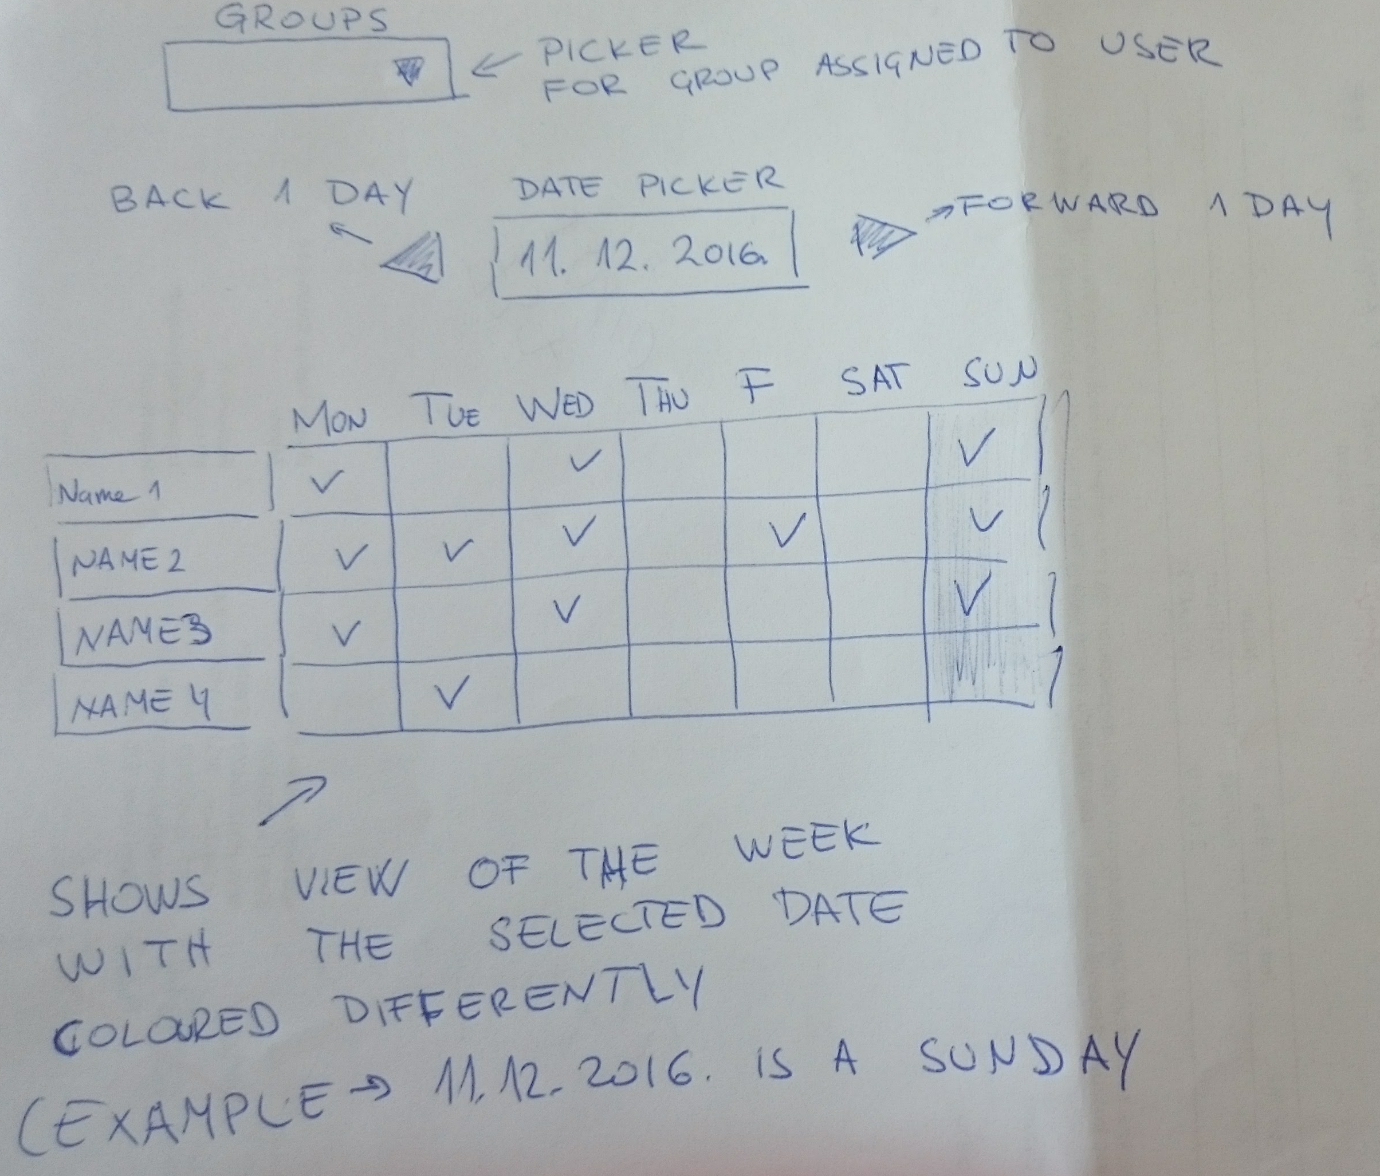 GROUPS
PICKER
FOR GROUP ASSIGNED TO USER
BACK 1 DAY
DATE PICKER
FORWARD 1 DAY
11. 12. 2016.
MON TUE WED THU F SAT SUN
Name 1
NAME 2
NAME3
NAME 4
SHOWS VIEW OF THE WEEK
WITH THE SELECTED DATE
COLOURED DIFFERENTLY
(EXAMPLE → 11.12.2016. IS A SUNDAY